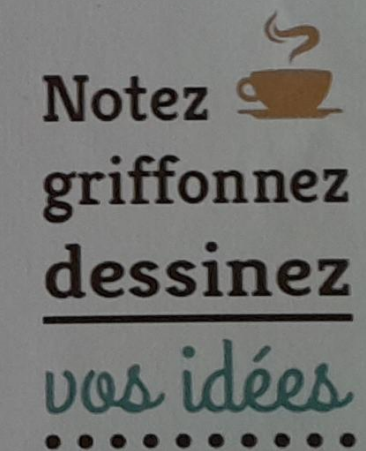 Notez
griffonnez
dessinez
vos idées